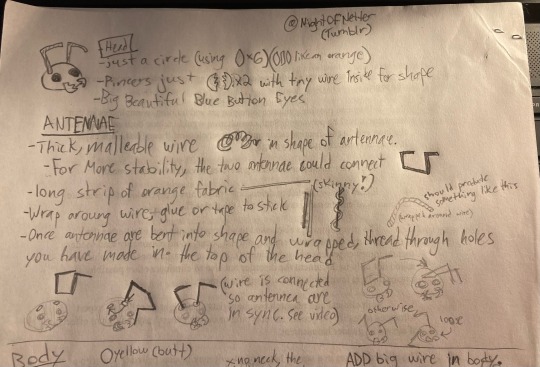 @MightOfNether
(Tumblr)
Head
-just a circle (using 0x6)(000 like an orange)
-Pincers just x2 with tiny wire inside for shape
-Big Beautiful Blue Button Eyes
ANTENNAE
-Thick, malleable wire or in shape of antennae.
-For More stability, the two antennae could connect
-long strip of orange fabric (skinny!)
-Wrap aroung wire, glue or tape to stick
should
something like this
(wrapped around wire)
-Once antennae are bent into shape and wrapped, thread through holes
you have made in the top of the head
(wire is connected
so antennea are
in sync. see video)
otherwise
loose
Body
yellow (butt)
neck, the
ADD big wire in body.